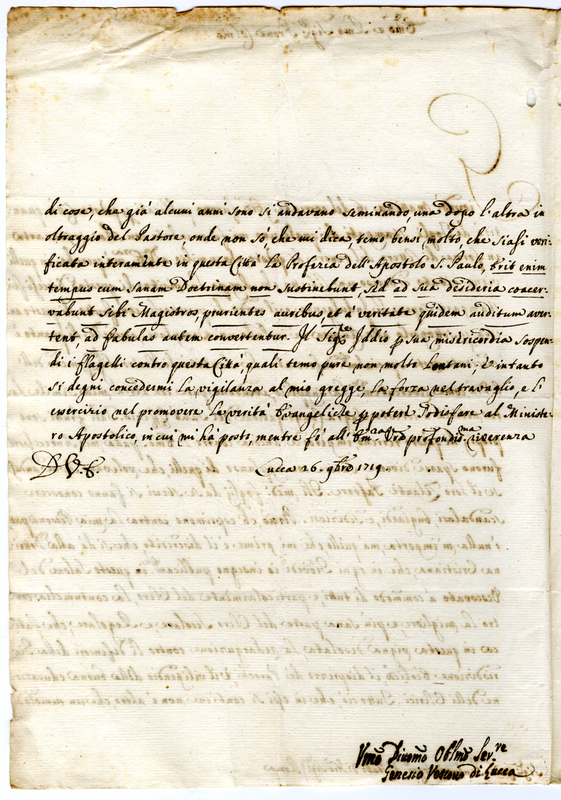 di cose, che già alcuni anni sono si andavano seminando, una dopo l'altra in
oltraggio del Pastore, onde non sò, che mi dica, temo bensì molto, che siasi veri-
ficata interamente in questa Città la Profezia dell'Apostolo S. Paulo, Erit enim
tempus cum sanam Doctrinam non sustinebunt, sed ad sua desideria coacer-
vabunt sibi Magistros, prurientes auribus, et à veritate quidem auditum aver-
tent, ad fabulas autem convertentur. Il Sigre. Iddio p sua misericordia sospen-
di i flagelli contro questa Città, quali temo pure non molto lontani, e intanto
si degni concedermi la vigilanza al mio gregge, la forza nel travaglio, e l'
esercizio nel promovere la verità Evangeliche p poter sodisfare al Ministe-
ro Apostolico, in cui mi hà posto, mentre fò all' Vra profondisma. riverenza
Lucca 26. 9bre 1719.
Vmo Divomo Oblmo Ser.re
Genesio Vescovo di Lucca